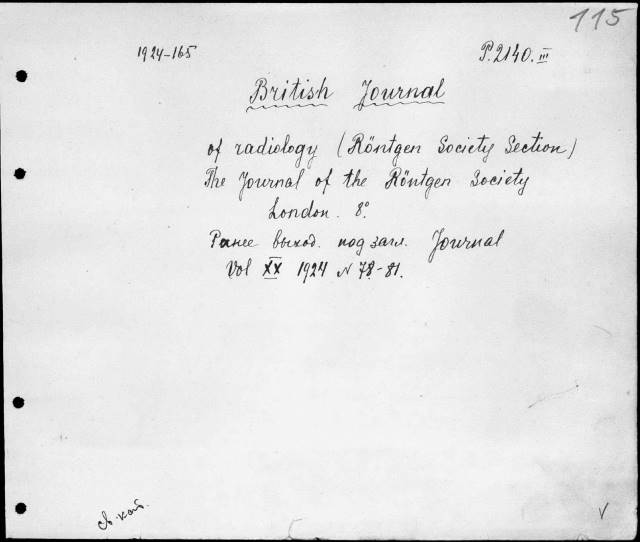 115
1924-165
P.2140.III
British Journal
of radiology (Röntgen Society Section)
The Journal of the Röntgen Society
London. 8°.
Ранее выход. под загл. Journal
Vol XX 1924 N 78-81.
V